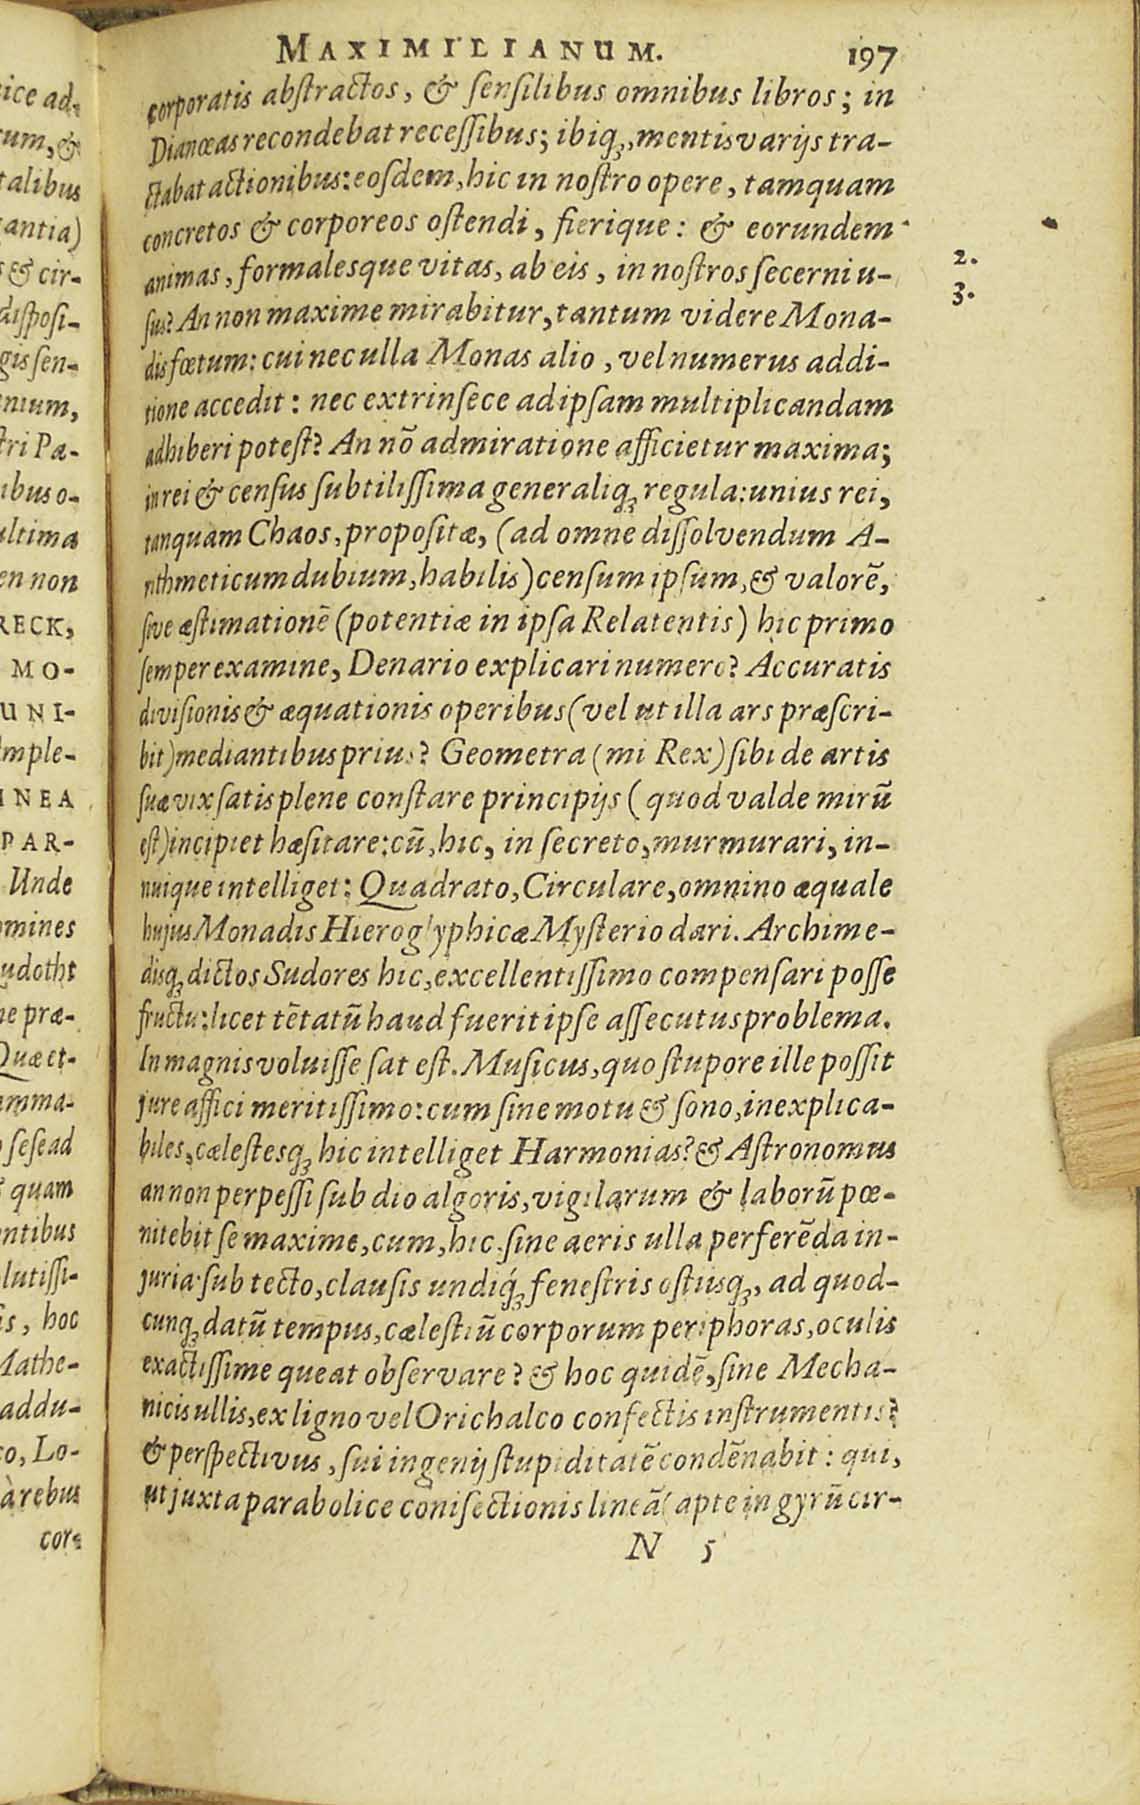 MAXIMILIANUM. 197
corporatis abſtractos, & ſenſilibus omnibus libros; in
Dianœas recondebat receſſibus; ibiq́ꝫ, mentis varijs tra-
ctabat actionibus: eoſdem, hic in noſtro opere, tamquam
concretos & corporeos oſtendi, fierique: & eorundem
animas, formalesque vitas, ab eis, in noſtros ſecerni u-
2.
ſus? An non maxime mirabitur, tantum videre Mona-
3.
dis fœtum: cui nec ulla Monas alio, vel numerus addi-
tione accedit: nec extrinſece ad ipſam multiplicandam
adhiberi poteſt? An nō admiratione afficietur maxima;
in rei & cenſus ſubtiliſſima generaliqꝫ regula: unius rei,
tanquam Chaos, propoſitæ, (ad omne diſſolvendum A-
rithmeticum dubium, habilis) cenſum ipſum, & valorē,
ſive æſtimationē (potentiæ in ipſa Relatentis) hic primo
ſemper examine, Denario explicari numero? Accuratis
diviſionis & æquationis operibus (vel ut illa ars præſcri-
bit) mediantibus prius? Geometra (mi Rex) ſibi de artis
ſuæ vix ſatis plene conſtare principijs (quod valde mirū
eſt) incipiet hæſitare: cū, hic, in ſecreto, murmurari, in-
nuique intelliget: Quadrato, Circulare, omnino æquale
hujus Monadis Hieroglyphicæ Myſterio dari. Archime-
disqꝫ dictos Sudores hic, excellentiſſimo compenſari poſſe
fructu: licet tētatū haud fuerit ipſe aſſecutus problema.
In magnis voluiſſe ſat eſt. Muſicus, quo ſtupore ille poſſit
jure affici meritiſſimo: cum ſine motu & ſono, inexplica-
biles, cæleſtesqꝫ hic intelliget Harmonias? & Aſtronomus
an non perpeſſi ſub dio algoris, vigilarum & laborū pœ-
nitebit ſe maxime, cum, hic, ſine aeris ulla perferēda in-
juria ſub tecto, clauſis undiq́ꝫ feneſtris oſtiisqꝫ, ad quod-
cunqꝫ datū tempus, cæleſtiū corporum periphoras, oculis
exactiſſime queat obſervare? & hoc quidē, ſine Mecha-
nicis ullis, ex ligno vel Orichalco confectis inſtrumentis?
& perſpectivus, ſui ingenij ſtupiditatē condēnabit: qui,
ut juxta parabolice coniſectionis lineā (apte in gyrū cir-
N 5
ice ad-
tum, &
talibus
antia)
s & cir-
diſpoſi-
gis ſen-
nium,
ſtri Pa-
ibus o-
ultima
en non
RECK,
MO-
UNI-
mple-
INEA
PAR-
Unde
omines
udotht
ne præ-
Quæ et-
amma-
ſeſe ad
quam
entibus
lutiſſi-
is, hoc
Mathe-
addu-
co, Lo-
àrebus
cor-